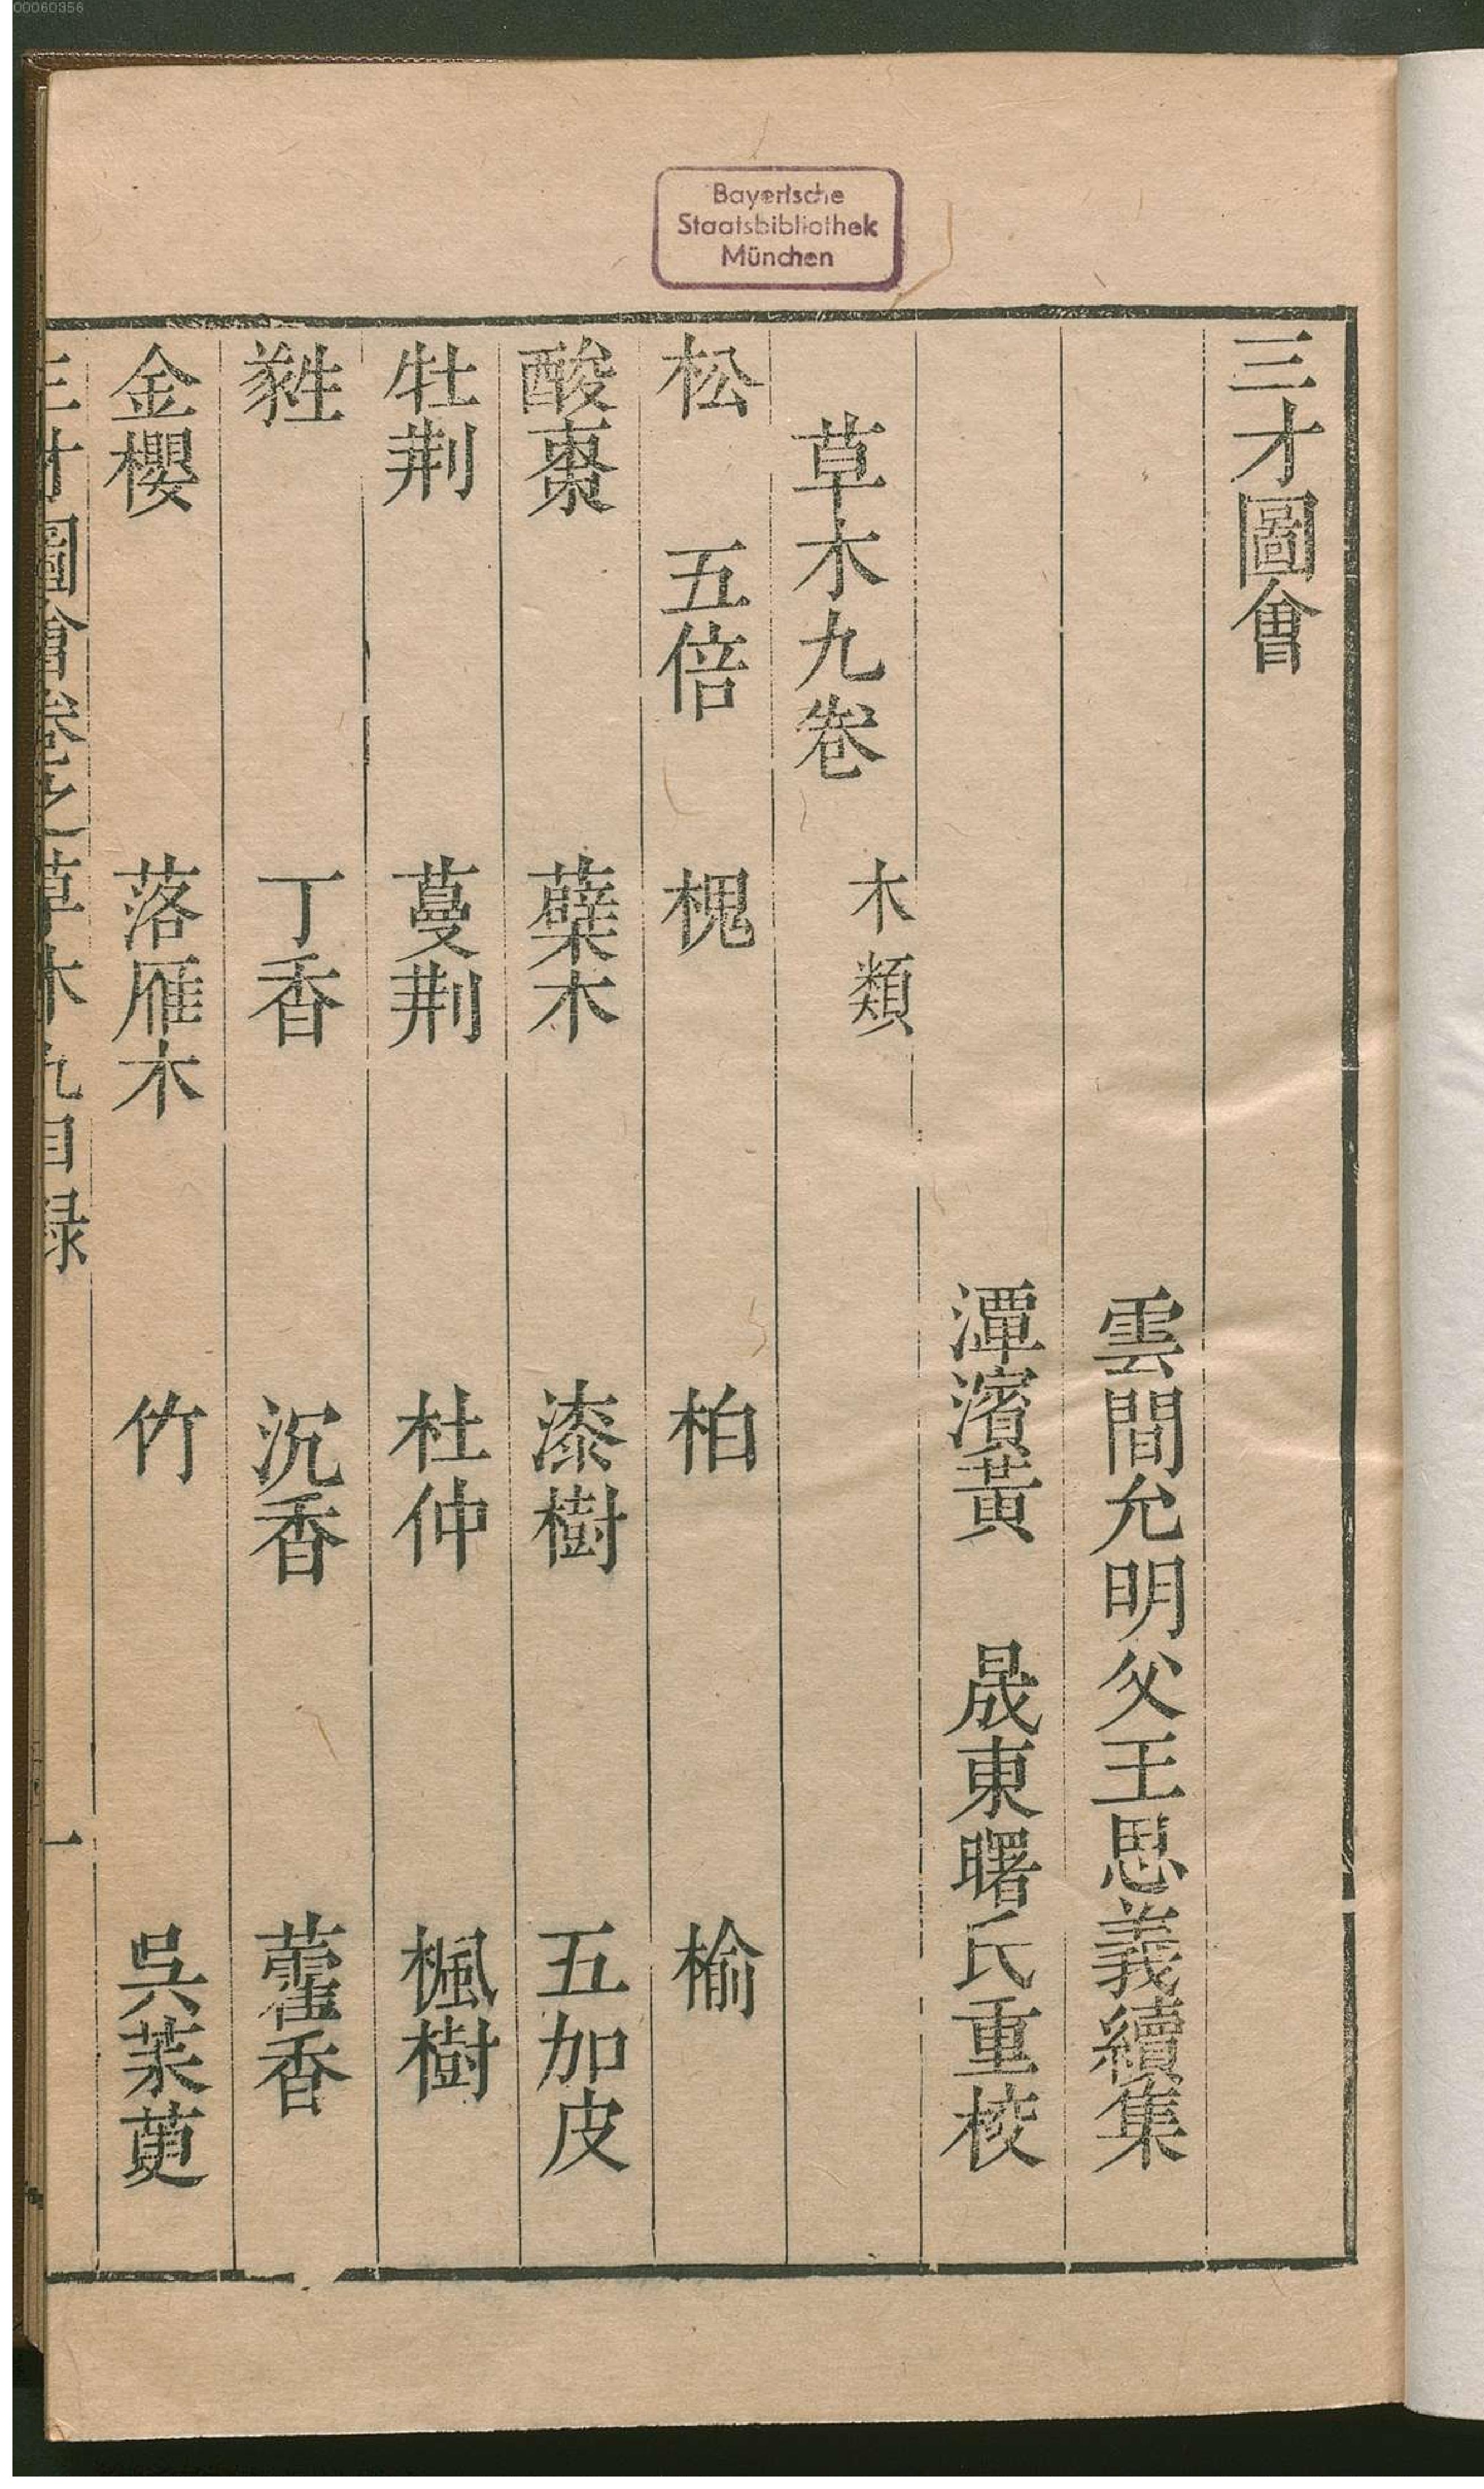 00060356
Bayerische
Staatsbibliothek
München
三才圖會
雲間允明父王思義續集
潭濱黃 晟東曙氏重校
草木九卷 木類
松 五倍 槐 柏 榆
酸棗 蘗木 漆樹 五加皮
牡荆 蔓荆 杜仲 楓樹
丁香 沉香 藿香
金櫻 落雁木 竹 吳茱萸
三才圖會卷之草木九目録 一